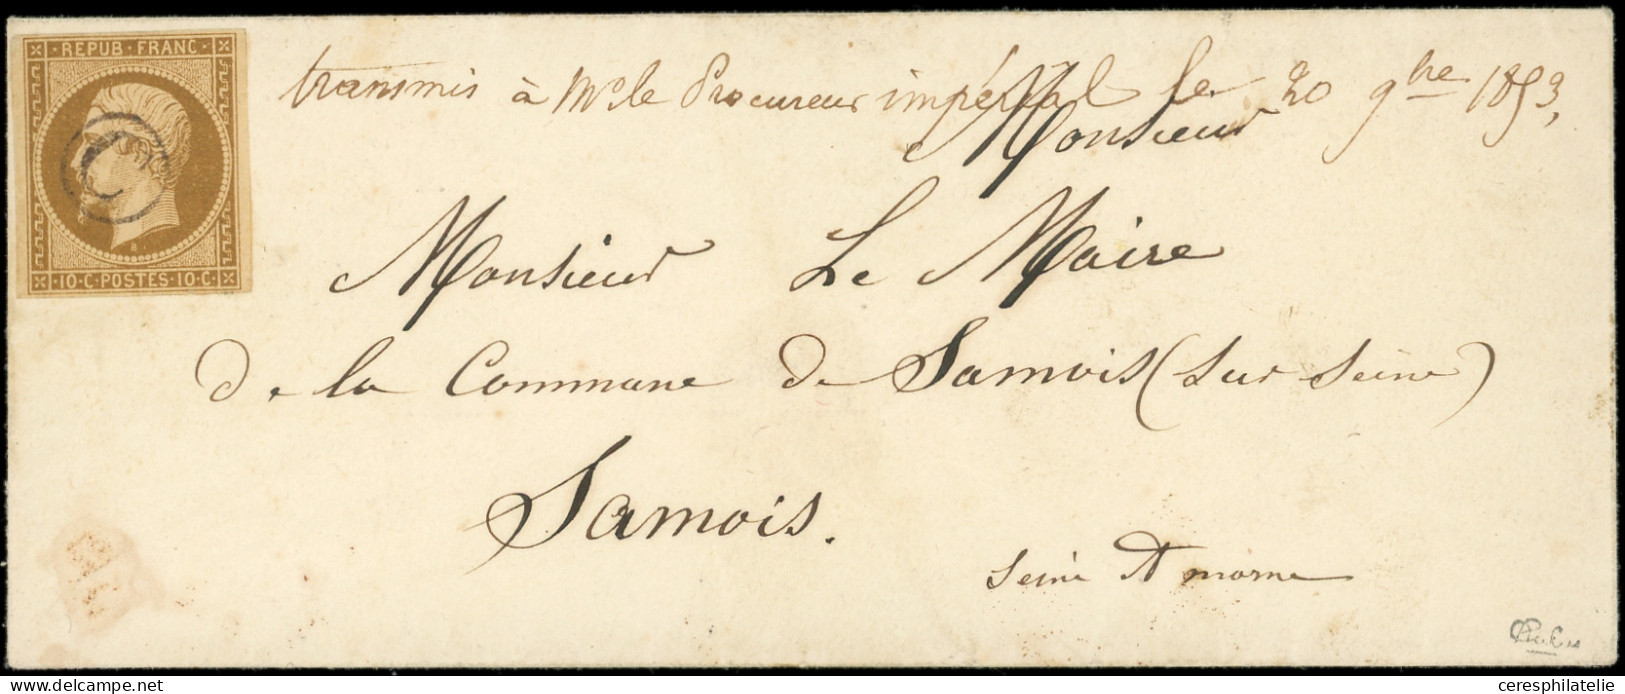 REPUB · FRANC ·
10 · C · POSTES · 10 · C ·
transmis à Mr le Procureur impérial le 20 9bre 1853,
Monsieur
Monsieur Le Maire
de la Commune de Samois (sur Seine)
Samois.
Seine et marne
ceresphilatelie